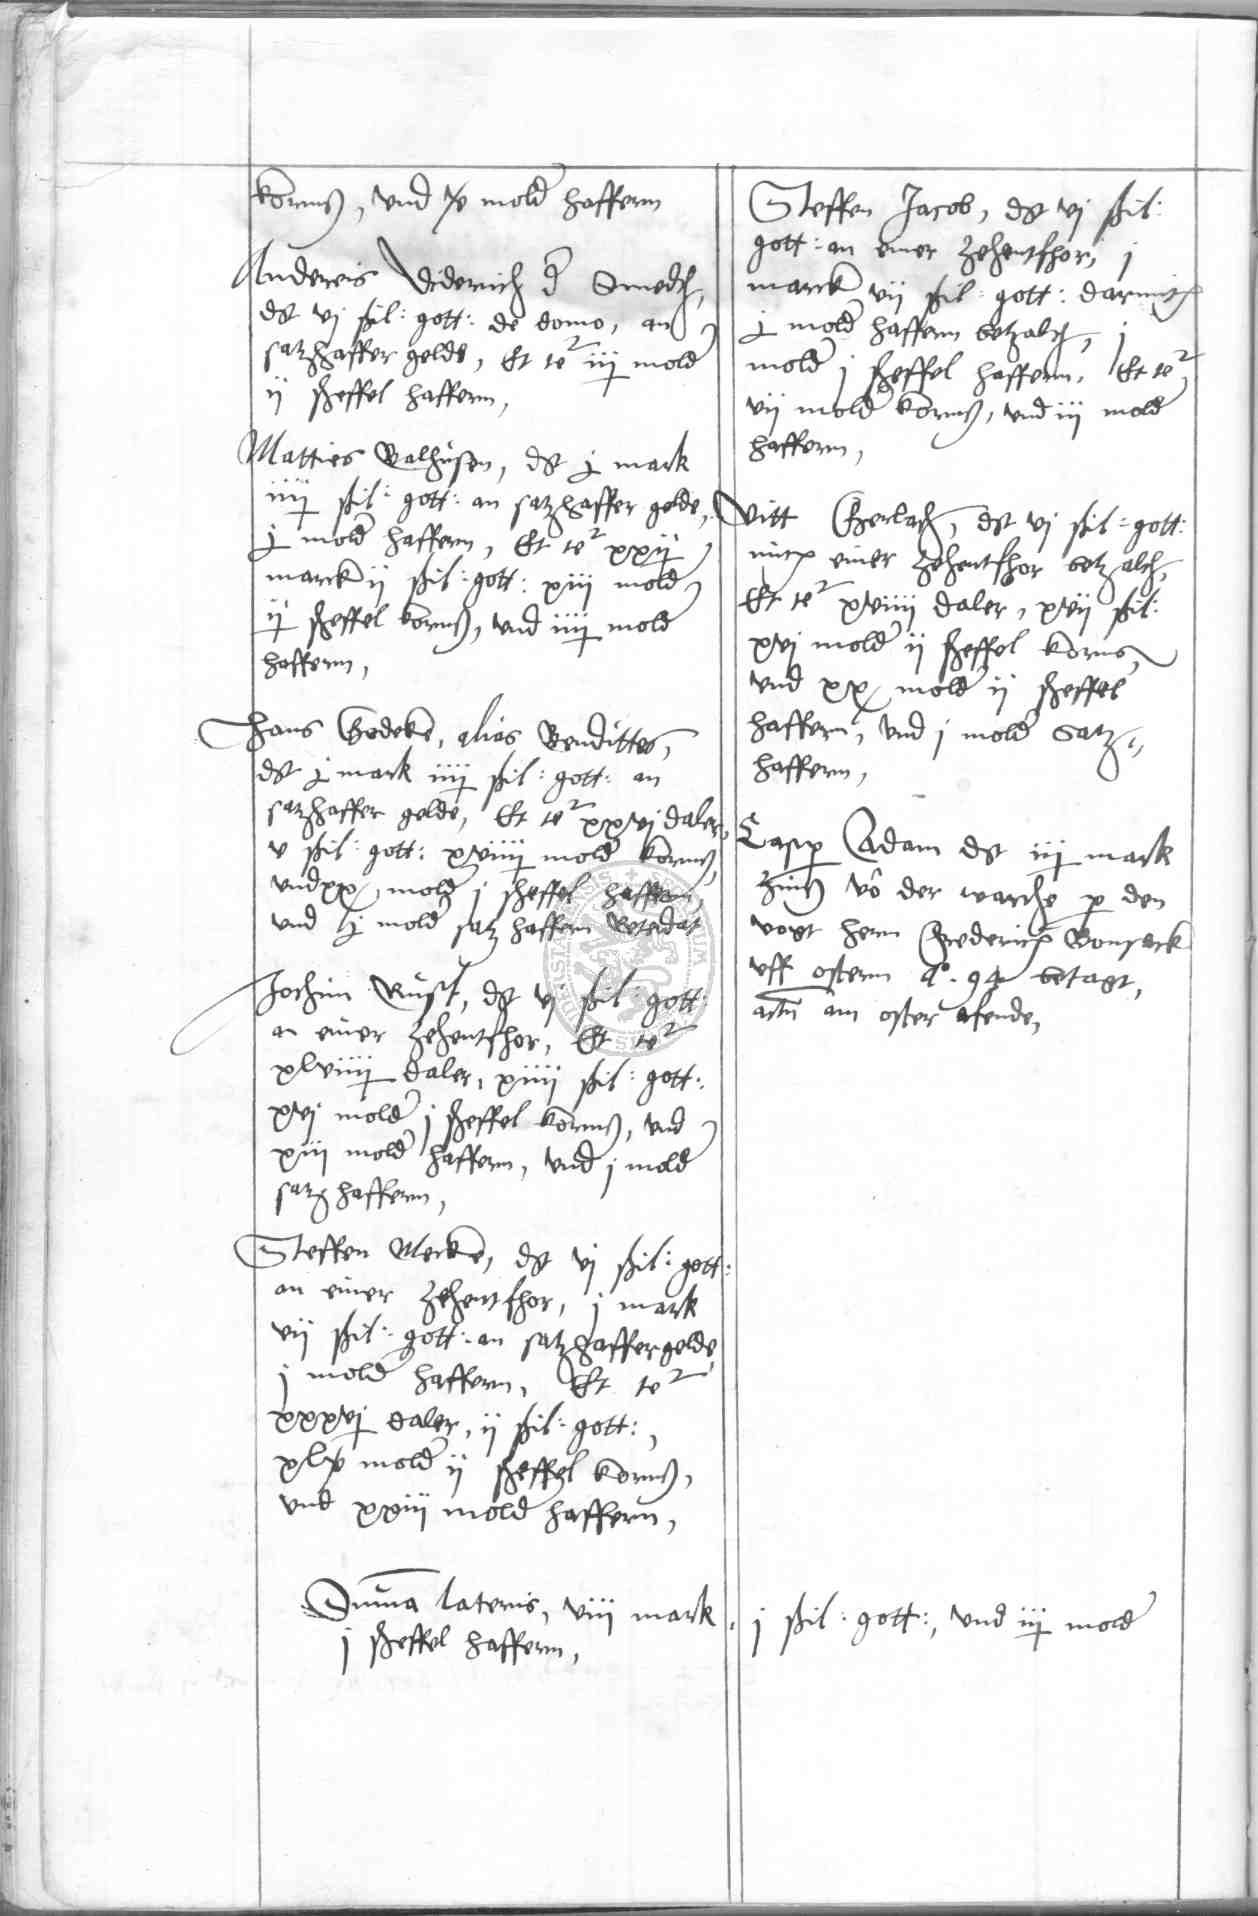 korns, und x mold haffern
Andereis Diderich d Smedt,
dt vj ßil: gott: de domo, an
satzhaffer gelde, Et te iiij mold
ij scheffel haffern,
Matties Valhusen, dt j mark
iiij ßil: gott: an satzhaffer gelde,
j mold haffern, Et te xxij
marck ij ßil: gott: xiii mold
ij scheffel korns, und iiij mold
haffern,
Hans Godeke, alias Bendittes,
dt j mark iiij ßil: gott: an
satzhaffer gelde, Et te xxvj daler,
v ßil: gott: xviiij mold korns,
und xx mold j scheffel haffern,
und j mold satz haffern
Jochim Rust, dt vj ßil: gott:
an einer zehentfhor, Et te
xlviiij daler, xiiii ßil: gott:
xvj mold j scheffel korns, und
xiii mold haffern, und j mold
satzhaffern,
Steffen Mecke, dt vj ßil: gott:
an einer zehentfhor, j mark
vij ßil: gott: an satzhaffergelde
j mold haffern, Et te
xxxvj daler, ij ßil: gott:,
xlv mold ij scheffel korns,
und xxiii mold haffern,
Steffen Jacob, dt vj ßil:
gott: an einer zehentfhor, j
marck vij ßil: gott: darmit
j mold haffern betzalt, j
mold j scheffel haffern, Et te
vij mold korns, und iii mold
haffern,
Vitt Gerlach, dt vj ßil: gott:
mit einer zehentfhor betzalt,
Et te xviiij daler, xvij ßil:
xvj mold ij scheffel korns,
und xx mold ij scheffel
haffern, und j mold satz
haffern,
Casp Adam dt iij mark
zins vô der warche p den
vogt hern Frederich Bonsack
uff ostern aº. 94 betagt,
actu am oster afende,
Suma lateris, viii mark, j ßil: gott:, und iij mold
j scheffel haffern,